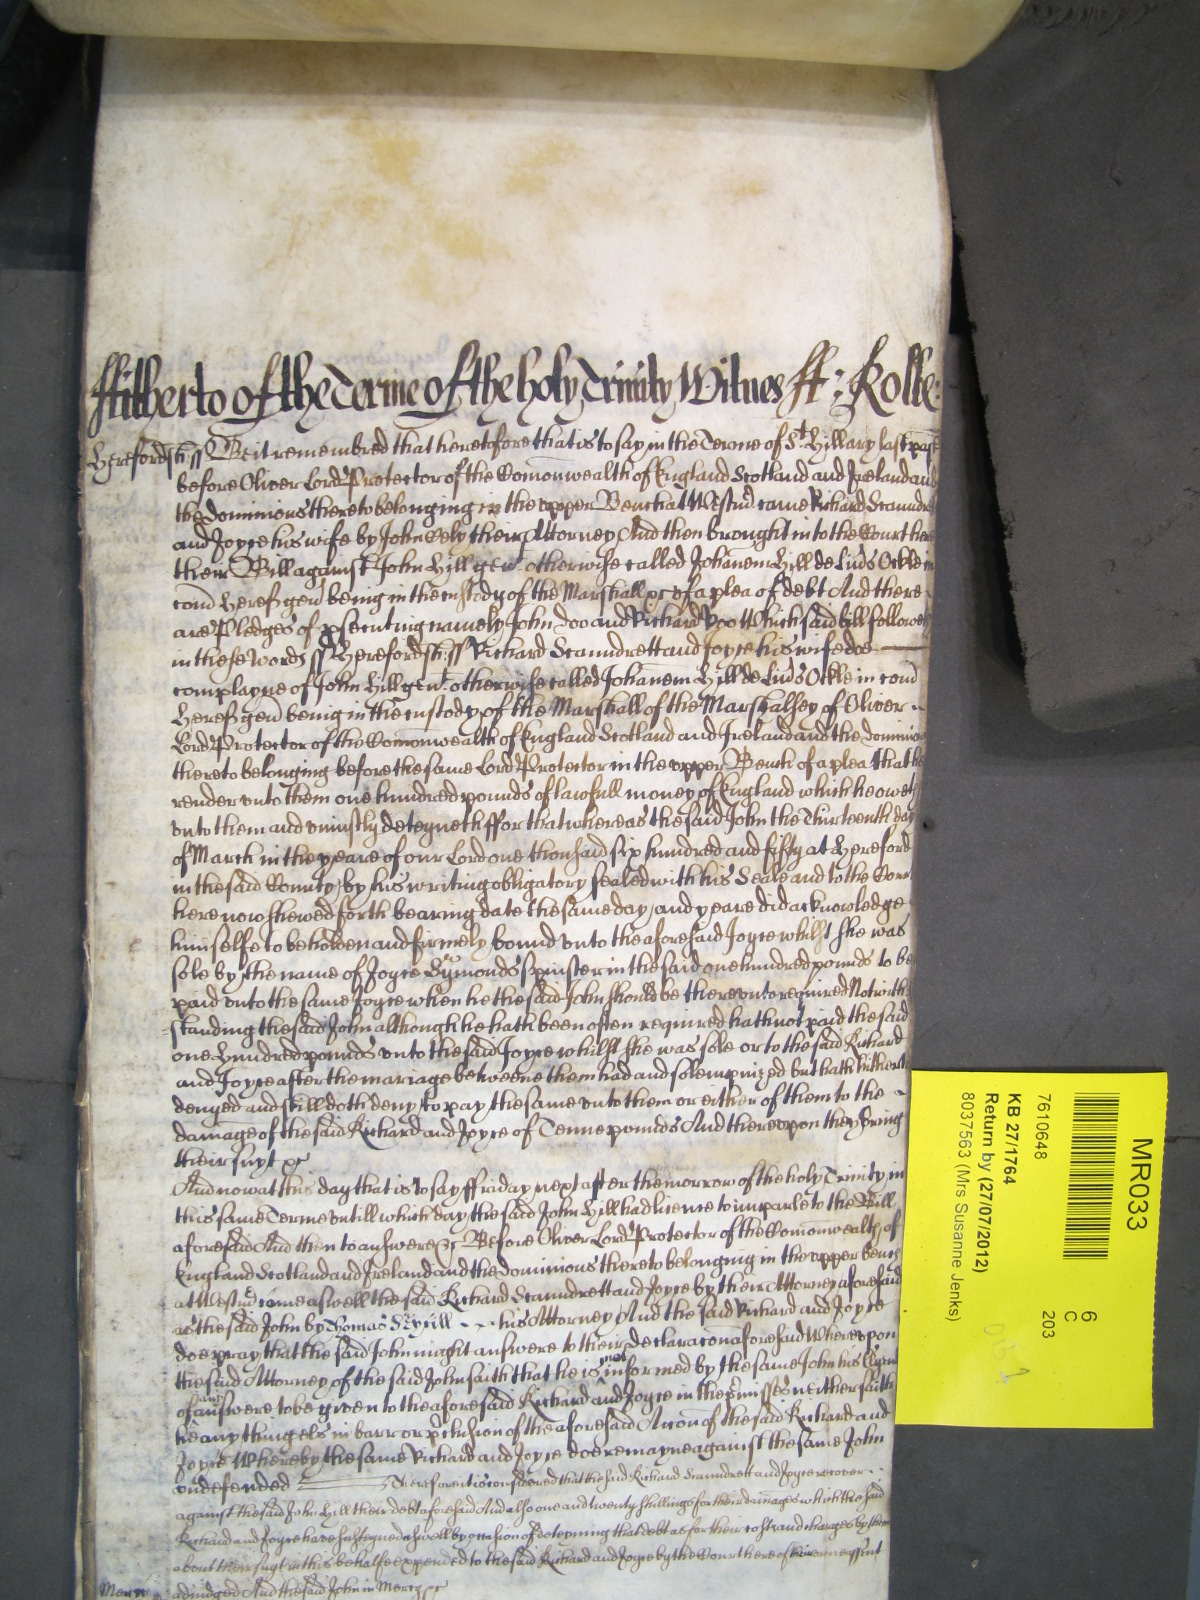 Hitherto of the Terme of the holy Trinity Witnes H: Rolle:
Herefordsh: ss Be it remembred that heretofore that is to say in the Terme of St. Hillary last past
before Oliver Lord Protector of the Comonwealth of England Scotland and Ireland and
the dominions thereto belonging in the upper Bench at Westmr came Richard Scaundrett
and Joyce his wife by John Sely their Attorney And then brought into the Court here
their Bill against John Hill gent otherwise called Johanem Hill de Luds Ockle in
com Heref gen being in the custody of the Marshall &c of a plea of debt And there
are Pledges of prosecuting namely John Doo and Richard Roo Which said bill followeth
in these words ss Herefordsh: ss Richard Scaundrett and Joyce his wife doe
complayne of John Hill gent otherwise called Johanem Hill de Luds Ockle in com
Heref gen being in the custody of the Marshall of the Marshalsey of Oliver
Lord Protector of the Comonwealth of England Scotland and Ireland and the dominions
thereto belonging before the same Lord Protector in the upper Bench of a plea that he
render unto them one hundred pounds of lawfull money of England which he oweth
unto them and uniustly deteyneth ffor that whereas the said John the Thirteenth day
of March in the yeare of our Lord one thousand six hundred and fifty at Hereford
in the said County by his writing obligatory sealed with his Seale and to the Court
here now shewed forth bearing date the same day and yeare did acknowledge
himselfe to be holden and firmely bound unto the aforesaid Joyce whilst she was
sole by the name of Joyce Symonds spinster in the said one hundred pounds to be
paid unto the same Joyce when he the said John should be thereunto required Notwith
standing the said John although he hath been often required hath not paid the said
one hundred pounds unto the said Joyce whilst she was sole or to the said Richard
and Joyce after the marriage betweene them had and solempnized but hath hitherto
denyed and still doth deny to pay the same unto them or either of them to the
damage of the said Richard and Joyce of Tenne pounds And thereupon they bring
their suyt &c
And now at this day that is to say ffriday next after the morrow of the holy Trinity in
this same Terme untill which day the said John Hill had licence to imparle to the Bill
aforesaid And then to answere &c Before Oliver Lord Protector of the Comonwealth of
England Scotland and Ireland and the dominions thereto belonging in the upper bench
at Westmr came aswell the said Richard Scaundrett and Joyce by their Attorney aforesaid
as the said John by Thomas his Attorney And the said Richard and Joyce
doe pray that the said John might answere to their declaracon aforesaid Whereupon
the said Attorney of the said John saith that he is not informed by the same John his Clyent
of any answere to be given to the aforesaid Richard and Joyce in the premisses neither saith
he any thing els in barr or preclusion of the aforesaid Accon of the said Richard and
Joyce Whereby the same Richard and Joyce doe remayne against the same John
undefended Therefore it is considered that the said Richard Scaundrett and Joyce recover
against the said John Hill their debt aforesaid And also one and twenty shillings for their damages which the said
Richard and Joyce have susteyned aswell by occasion of deteyning that debt as for their costs and charges by them
about their suyt in this behalfe expended to the said Richard and Joyce by the Court here of their owne assent
Mercy adiudged And the said John in Mercy &c
MR033
6
C
203
7610648
KB 27/1764
Return by (27/07/2012)
8037563 (Mrs Susanne Jenks)